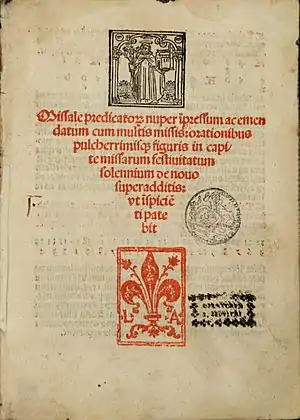 Missale predicatorꝝ nuper īpressum ac emen
datum cum multis missis: orationibus
pulcherrimisqꝫ figuris in capi
te missarum festiuitatum
solennium de nouo
superadditis:
vt īspiciē
ti pate
bit
L A